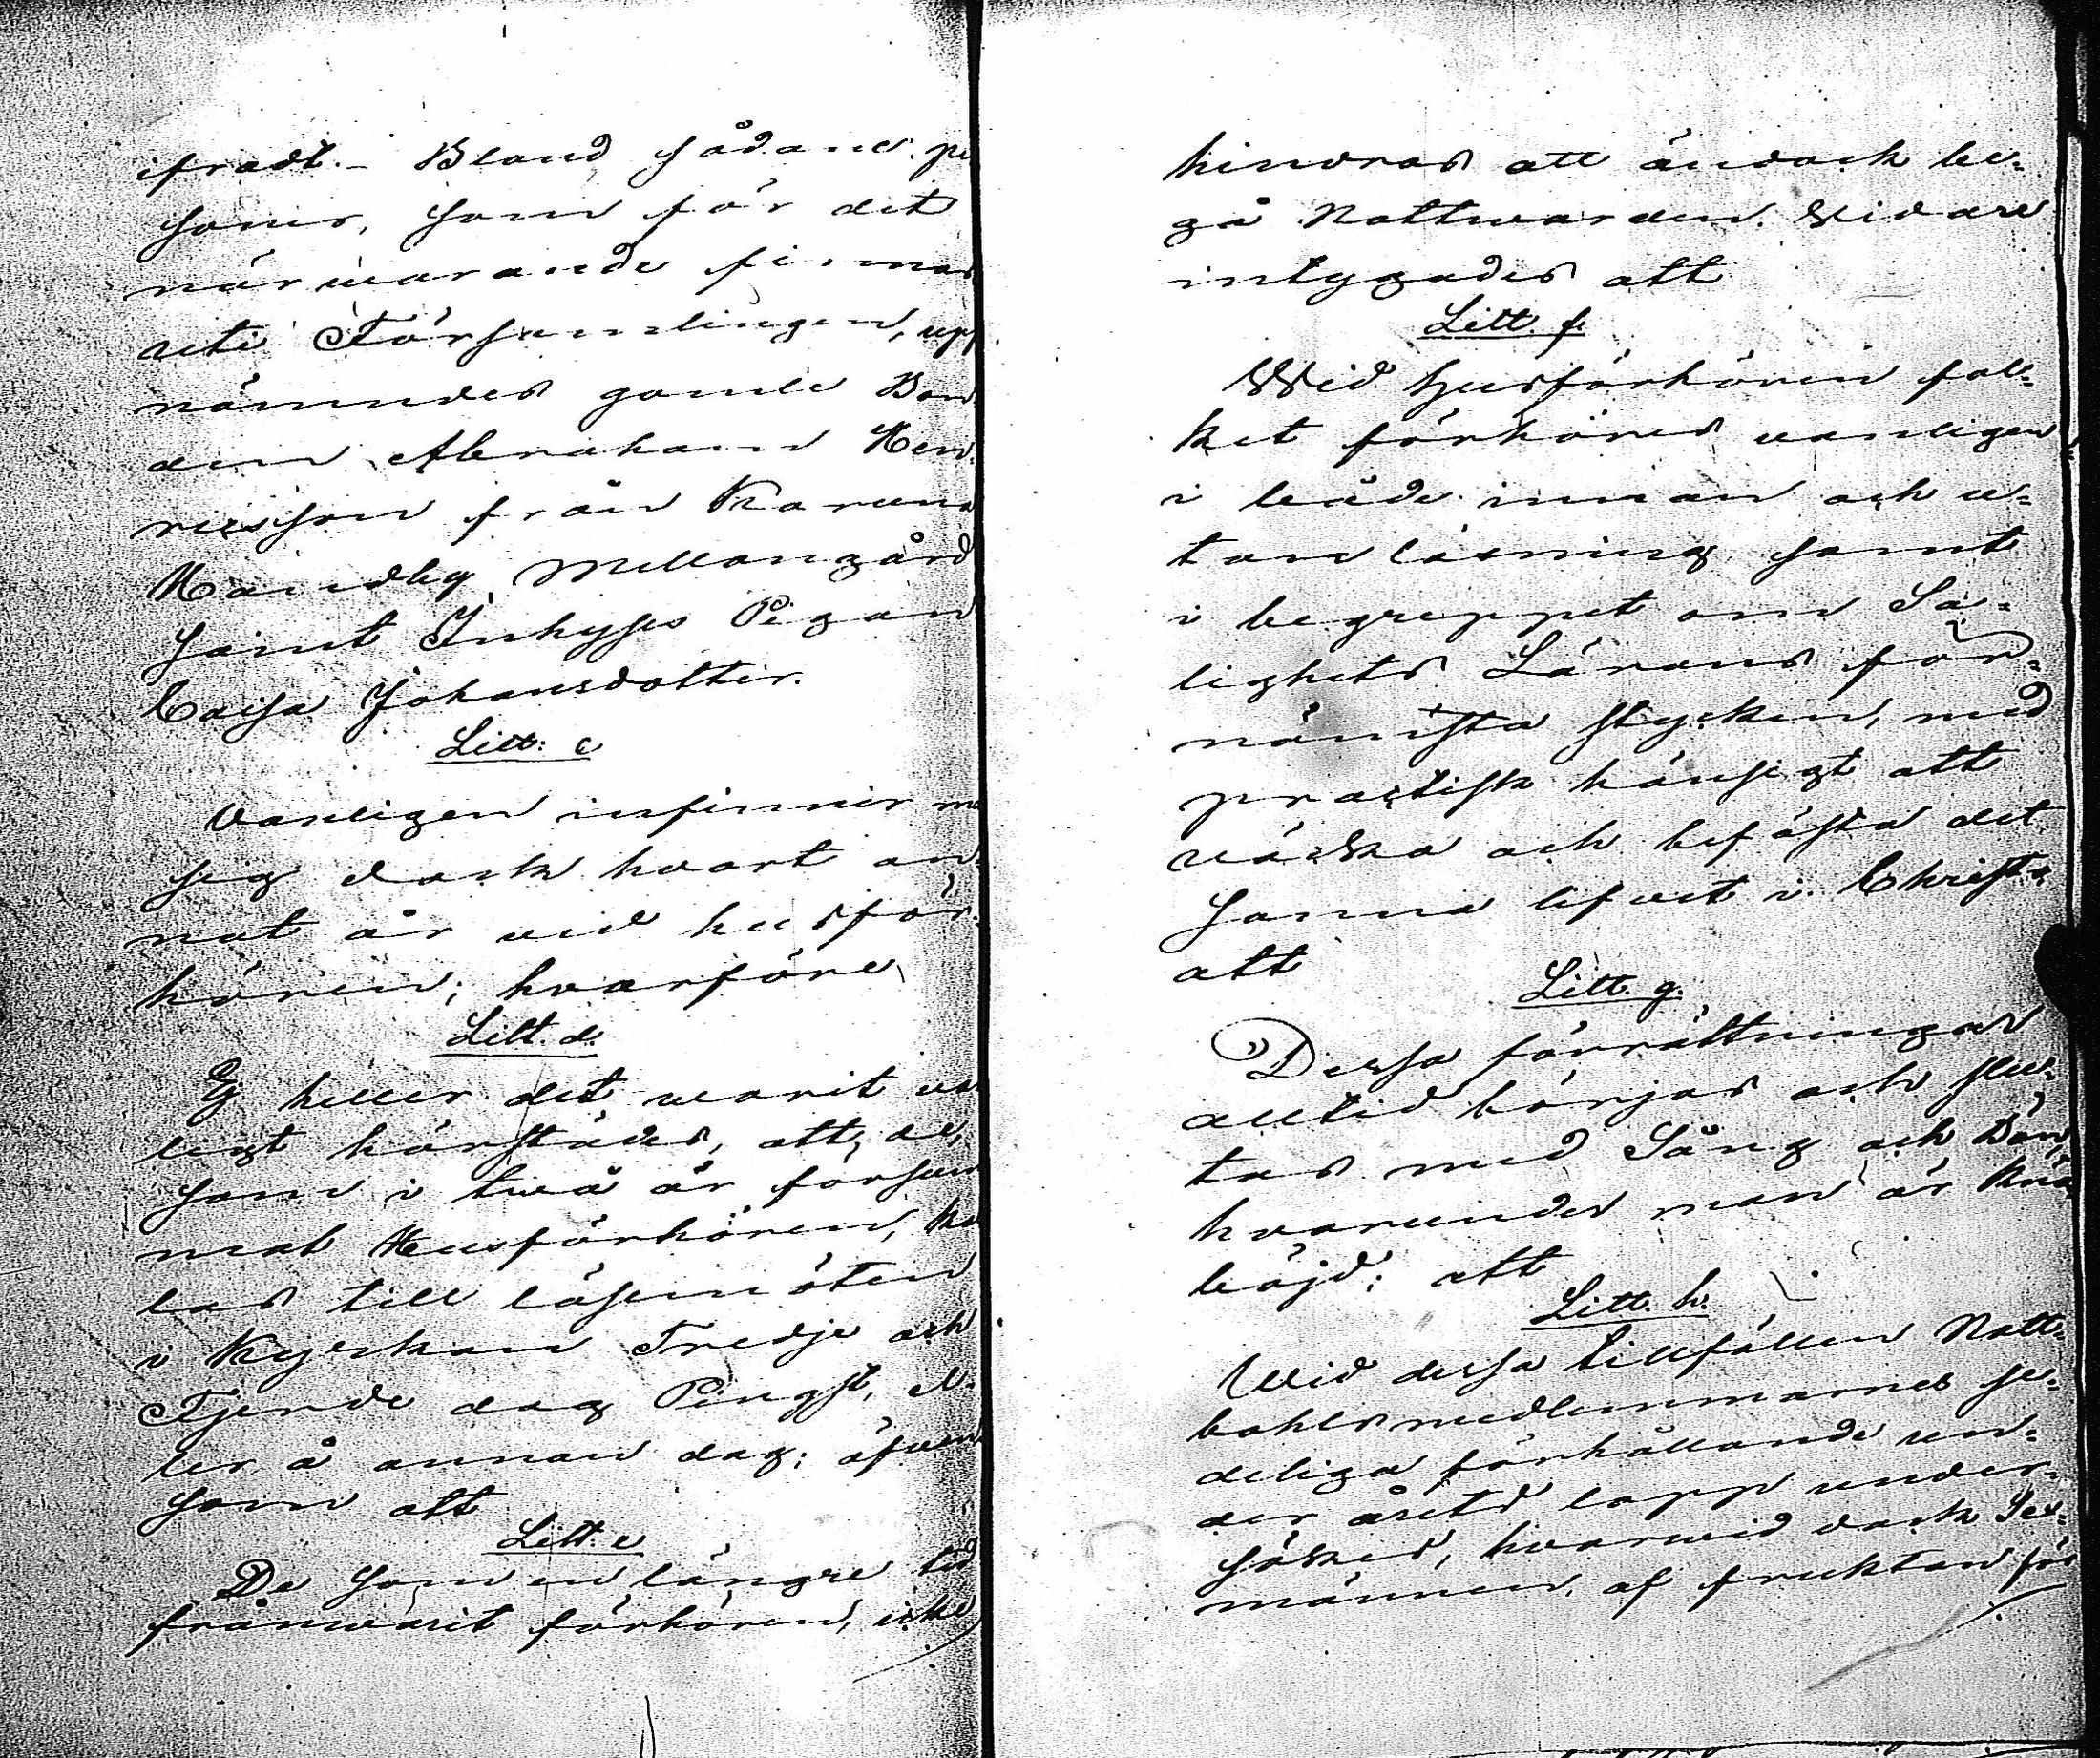 ifradt. – Bland sådane pe
soner, som för det
närwarande finnas
uti Församlingen, upp
nämndes gamle Bon
den Abraham Hen
ricsson från Karuna
Handby Mellangård
samt Inhyses Pigan
Caisa Johansdotter.
Litt: c
Vanligen infinner m
sig dock hvart an
nat år vid husför
hören; hvarföre
Litt. d.
Ej heller det warit va
ligt härstädes, att, de,
som i twå år försum
mat Husförhören, ka
las till läsemöten
i Kyrkan Tredje och
Fjerde dag Pingst, el-
ler å annan dag; äfwen
som att
Litt. e
De som en längre tid
frånwarit förhören, icke
hindras att ändock be-
gå Nattwarden. Widare
intygades att
Litt. f.
Wid Husförhören fol-
ket förhöres vanligen
i både innan och u-
tan läsning samt
i begreppet om Sa-
lighets Lärans för-
nämsta stycken, med
practisk hänsigt att
väcka och befästa det
sanna lifvet i Christo
att
Litt. g.
Dessa förrättningar
alltid börjas och slu-
tas med Sång och Bön,
hvarunder man är knä
böjd; att
Litt. h.
Wid dessa tillfällen Matt-
bohlsmedlemmarnes se-
deliga förhållande un-
der årets lopp under-
sökes, hvarwid dock Sex-
männen, af fruktan för